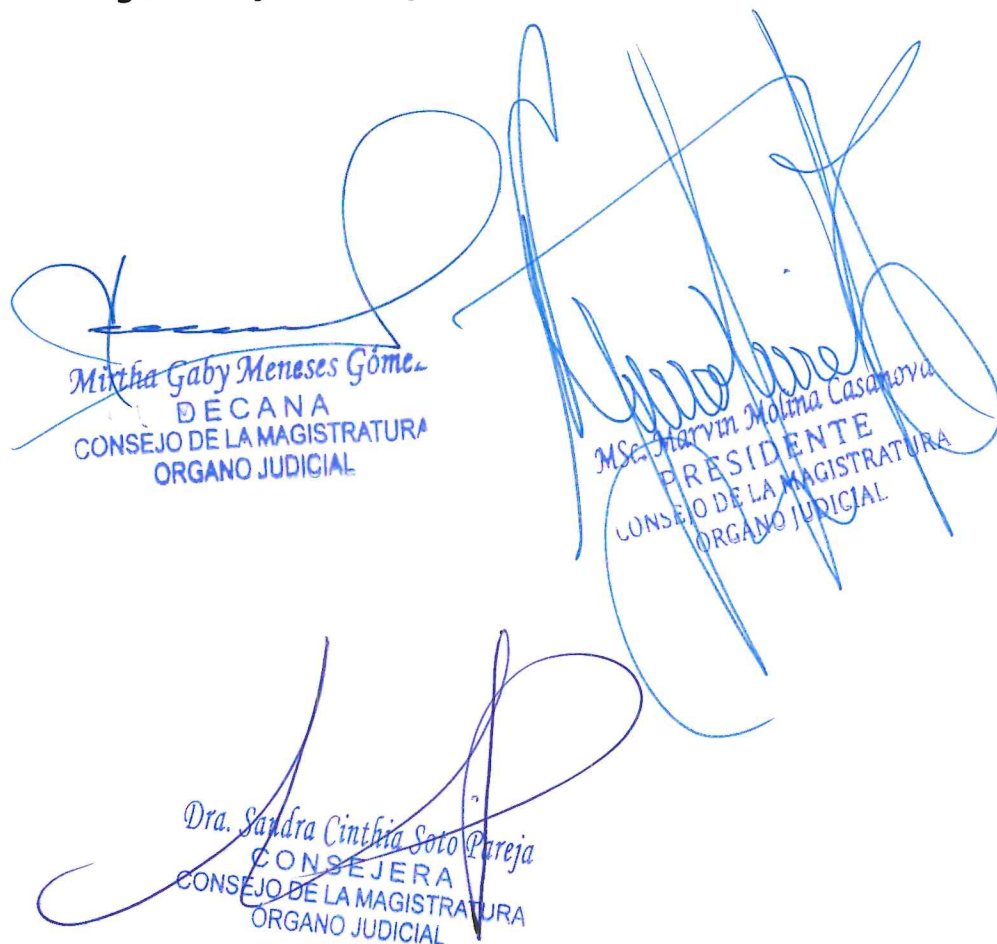 Mirtha Gaby Meneses Góme
DECANA
CONSEJO DE LA MAGISTRATURA
ORGANO JUDICIAL
MSc. Marvin Molina Casanova
PRESIDENTE
CONSEJO DE LA MAGISTRATURA
ORGANO JUDICIAL
Dra. Sandra Cinthia Soto Pareja
CONSEJERA
CONSEJO DE LA MAGISTRATURA
ORGANO JUDICIAL